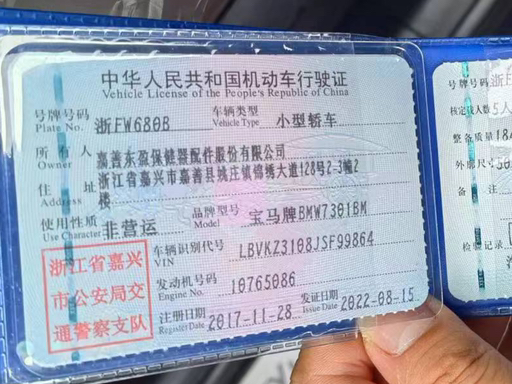 中华人民共和国机动车行驶证
Vehicle License of the People's Republic of China
号牌号码 浙FW680B 车辆类型 小型轿车
Plate No. Vehicle Type
所有人 嘉善东盈保健器配件股份有限公司
Owner
住址 浙江省嘉兴市嘉善县姚庄镇锦绣大道128号2-3幢2
Address 楼
使用性质 非营运 品牌型号 宝马牌BMW7301BM
Use Character Model
浙江省嘉兴
市公安局交
通警察支队
车辆识别代号 LBVKZ3108JSF99864
VIN
发动机号码 10765086
Engine No.
注册日期 2017-11-28 发证日期 2022-08-15
Register Date Issue Date
号牌号码 浙
核定载人数 5人
整备质量 184
外廓尺寸 50
备注
检验记录